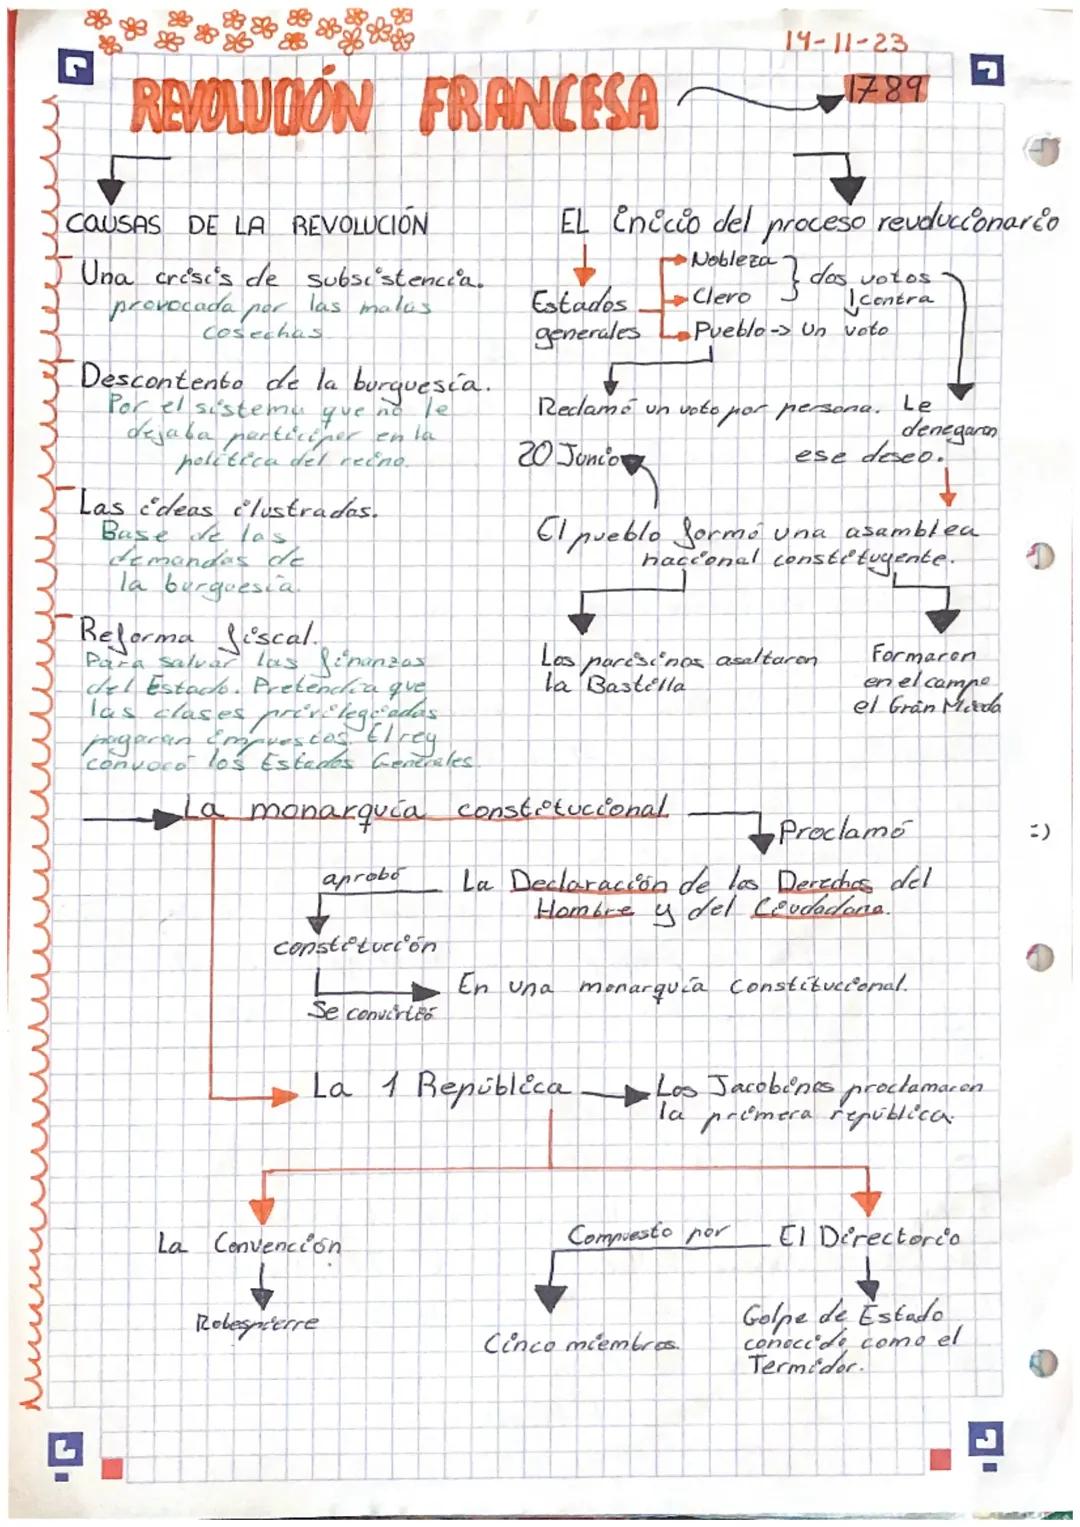 14-11-23
REVOLUCIÓN FRANCESA
1789
CAUSAS DE LA REVOLUCIÓN
Una crisis de subsistencia.
provocada por las malas
cosechas
Descontento de la burguesía.
Por el sistema que no le
dejaba participar en la
política del reino.
Las ideas ilustradas.
Base de las
demandas de
la burguesía.
Reforma fiscal.
Para salvar las finanzas
del Estado. Pretendía que
las clases privilegiadas
pagaran impuestos. El rey
convocó los Estados Generales.
EL inicio del proceso revolucionario
Estados
generales
Nobleza
Clero
dos votos
contra
Pueblo -> Un voto
Reclamó un voto por persona.
Le
denegaron
ese deseo.
20 Junio
El pueblo formó una asamblea
nacional constituyente.
Los parisinos asaltaron
la Bastilla
Formaron
en el campo
el Gran Miedo
La monarquía constitucional
Proclamó
La Declaración de los Derechos del
Hombre y del Ciudadano.
aprobó
constitución
Se convirtió
En una monarquía constitucional.
:)
La 1 República
Los Jacobinos proclamaron
la primera república.
La Convención
Robespierre
El Directorio
Compuesto por
Cinco miembros.
Golpe de Estado
conocido como el
Termidor.